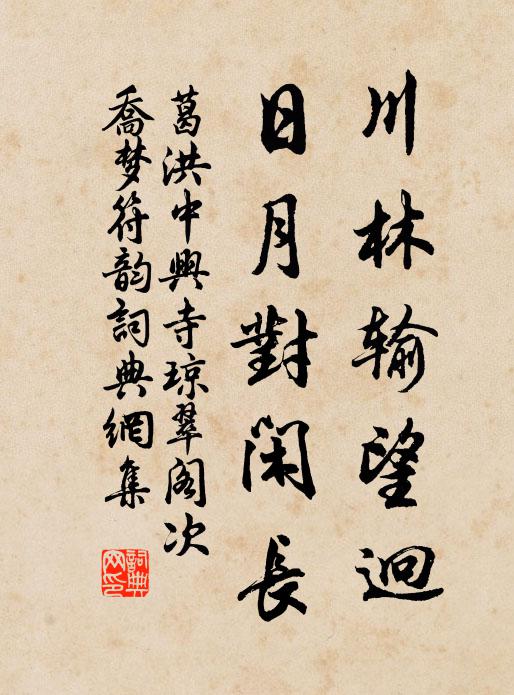 川林输望迥
日月對闲長
葛洪中興寺琼翠阁次
喬梦符韵詞典網集
詞典网印